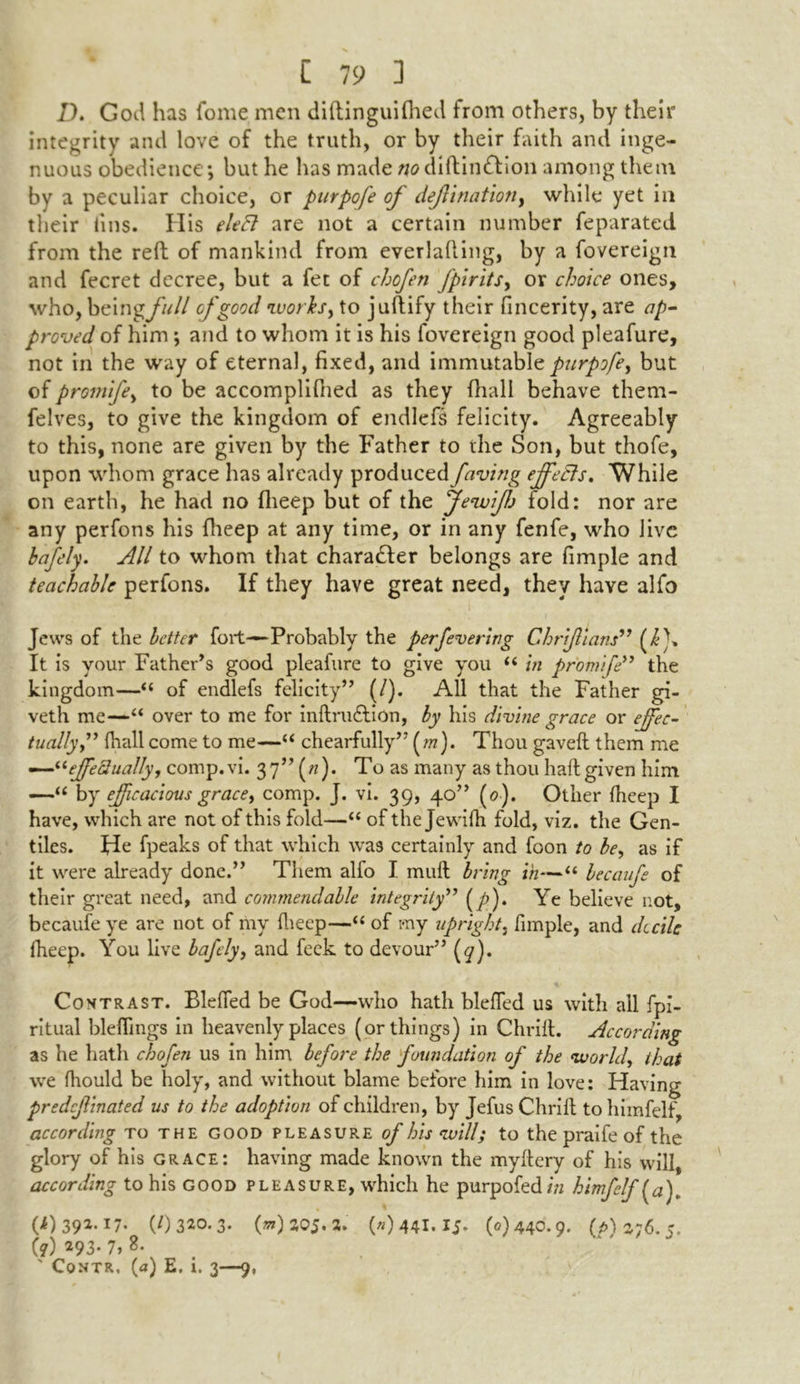 [ 79 ]
D. God has ſome men diſtinguiſhed from others, by their
integrity and love of the truth, or by their faith and inge-
nuous obedience; but he has made no diſtinction among them
by a peculiar choice, or purpoſe of deſtination, while yet in
their ſins. His elect are not a certain number ſeparated
from the reſt of mankind from everlaſting, by a ſovereign
and ſecret decree, but a ſet of choſen ſpirits, or choice ones,
who, being full of good works, to juſtify their ſincerity, are ap-
proved of him; and to whom it is his ſovereign good pleaſure,
not in the way of eternal, fixed, and immutable purpoſe, but
of promiſe, to be accompliſhed as they ſhall behave them-
ſelves, to give the kingdom of endleſs felicity. Agreeably
to this, none are given by the Father to the Son, but thoſe,
upon whom grace has already produced ſaving effects. While
on earth, he had no ſheep but of the Jewiſh fold: nor are
any perſons his ſheep at any time, or in any ſenſe, who live
baſely. All to whom that character belongs are ſimple and
teachable perſons. If they have great need, they have alſo
Jews of the better ſort—Probably the perſevering Chriſtians” (k).
It is your Father’s good pleaſure to give you “ in promiſe” the
kingdom—“ of endleſs felicity” (l). All that the Father gi-
veth me—“ over to me for inſtruction, by his divine grace or effec-
tually,” ſhall come to me—“ chearfully” (m). Thou gaveſt them me
—“effectually, comp. vi. 37” (n). To as many as thou haſt given him
—“ by efficacious grace, comp. J. vi. 39, 40” (o). Other ſheep I
have, which are not of this fold—“ of the Jewiſh fold, viz. the Gen-
tiles. He ſpeaks of that which was certainly and ſoon to be, as if
it were already done.” Them alſo I muſt bring in—“ becauſe of
their great need, and commendable integrity” (p). Ye believe not,
becauſe ye are not of my ſheep—“ of my upright, ſimple, and docile
ſheep. You live baſely, and ſeek to devour” (q).
Contrast. Bleſſed be God—who hath bleſſed us with all ſpi-
ritual bleſſings in heavenly places (or things) in Chriſt. According
as he hath choſen us in him before the foundation of the world, that
we ſhould be holy, and without blame before him in love: Having
predeſtinated us to the adoption of children, by Jeſus Chriſt to himſelf,
according TO THE GOOD PLEASURE of his will; to the praiſe of the
glory of his GRACE: having made known the myſtery of his will,
according to his GOOD PLEASURE, which he purpoſed in himſelf (a).
(k) 392. 17. (l) 320. 3. (m) 205. 2. (n) 441. 15. (o) 440. 9. (p) 276. 5.
(q) 293. 7, 8.
Contr. (a) E. i. 3—9,